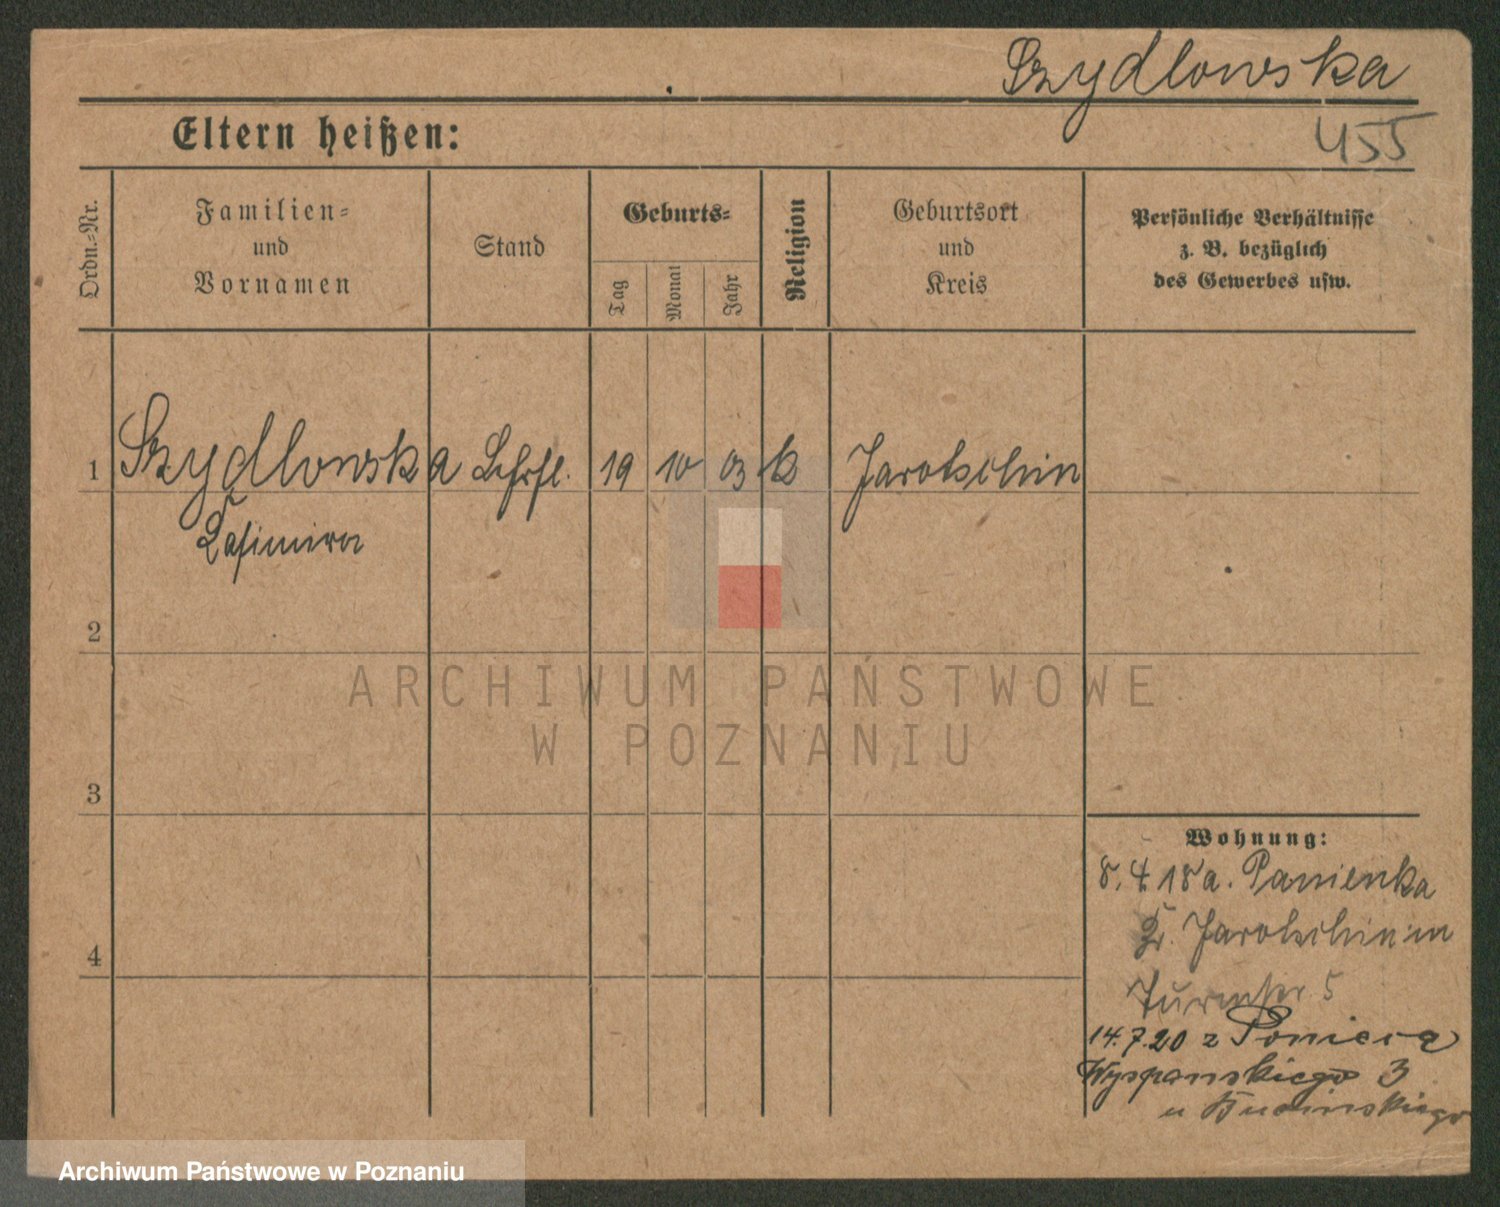 Szydlowska
455
Eltern heißen:
Ordn.-Nr.
Familien-
und
Vornamen
Stand
Geburts-
Tag
Monat
Jahr
Religion
Geburtsort
und
Kreis
Persönliche Verhältnisse
z. B. bezüglich
des Gewerbes usw.
1 Szydlowska Lehrfl. 19 10 03 k Jarotschin
Kasimira
2
3
4
Wohnung:
8. 4 18 a. Panienka
Kr. Jarotschin in
Turmstr 5
14.7.20 z Ponieca
Wyspanskiego 3
u
ARCHIWUM PAŃSTWOWE
W POZNANIU
Archiwum Państwowe w Poznaniu